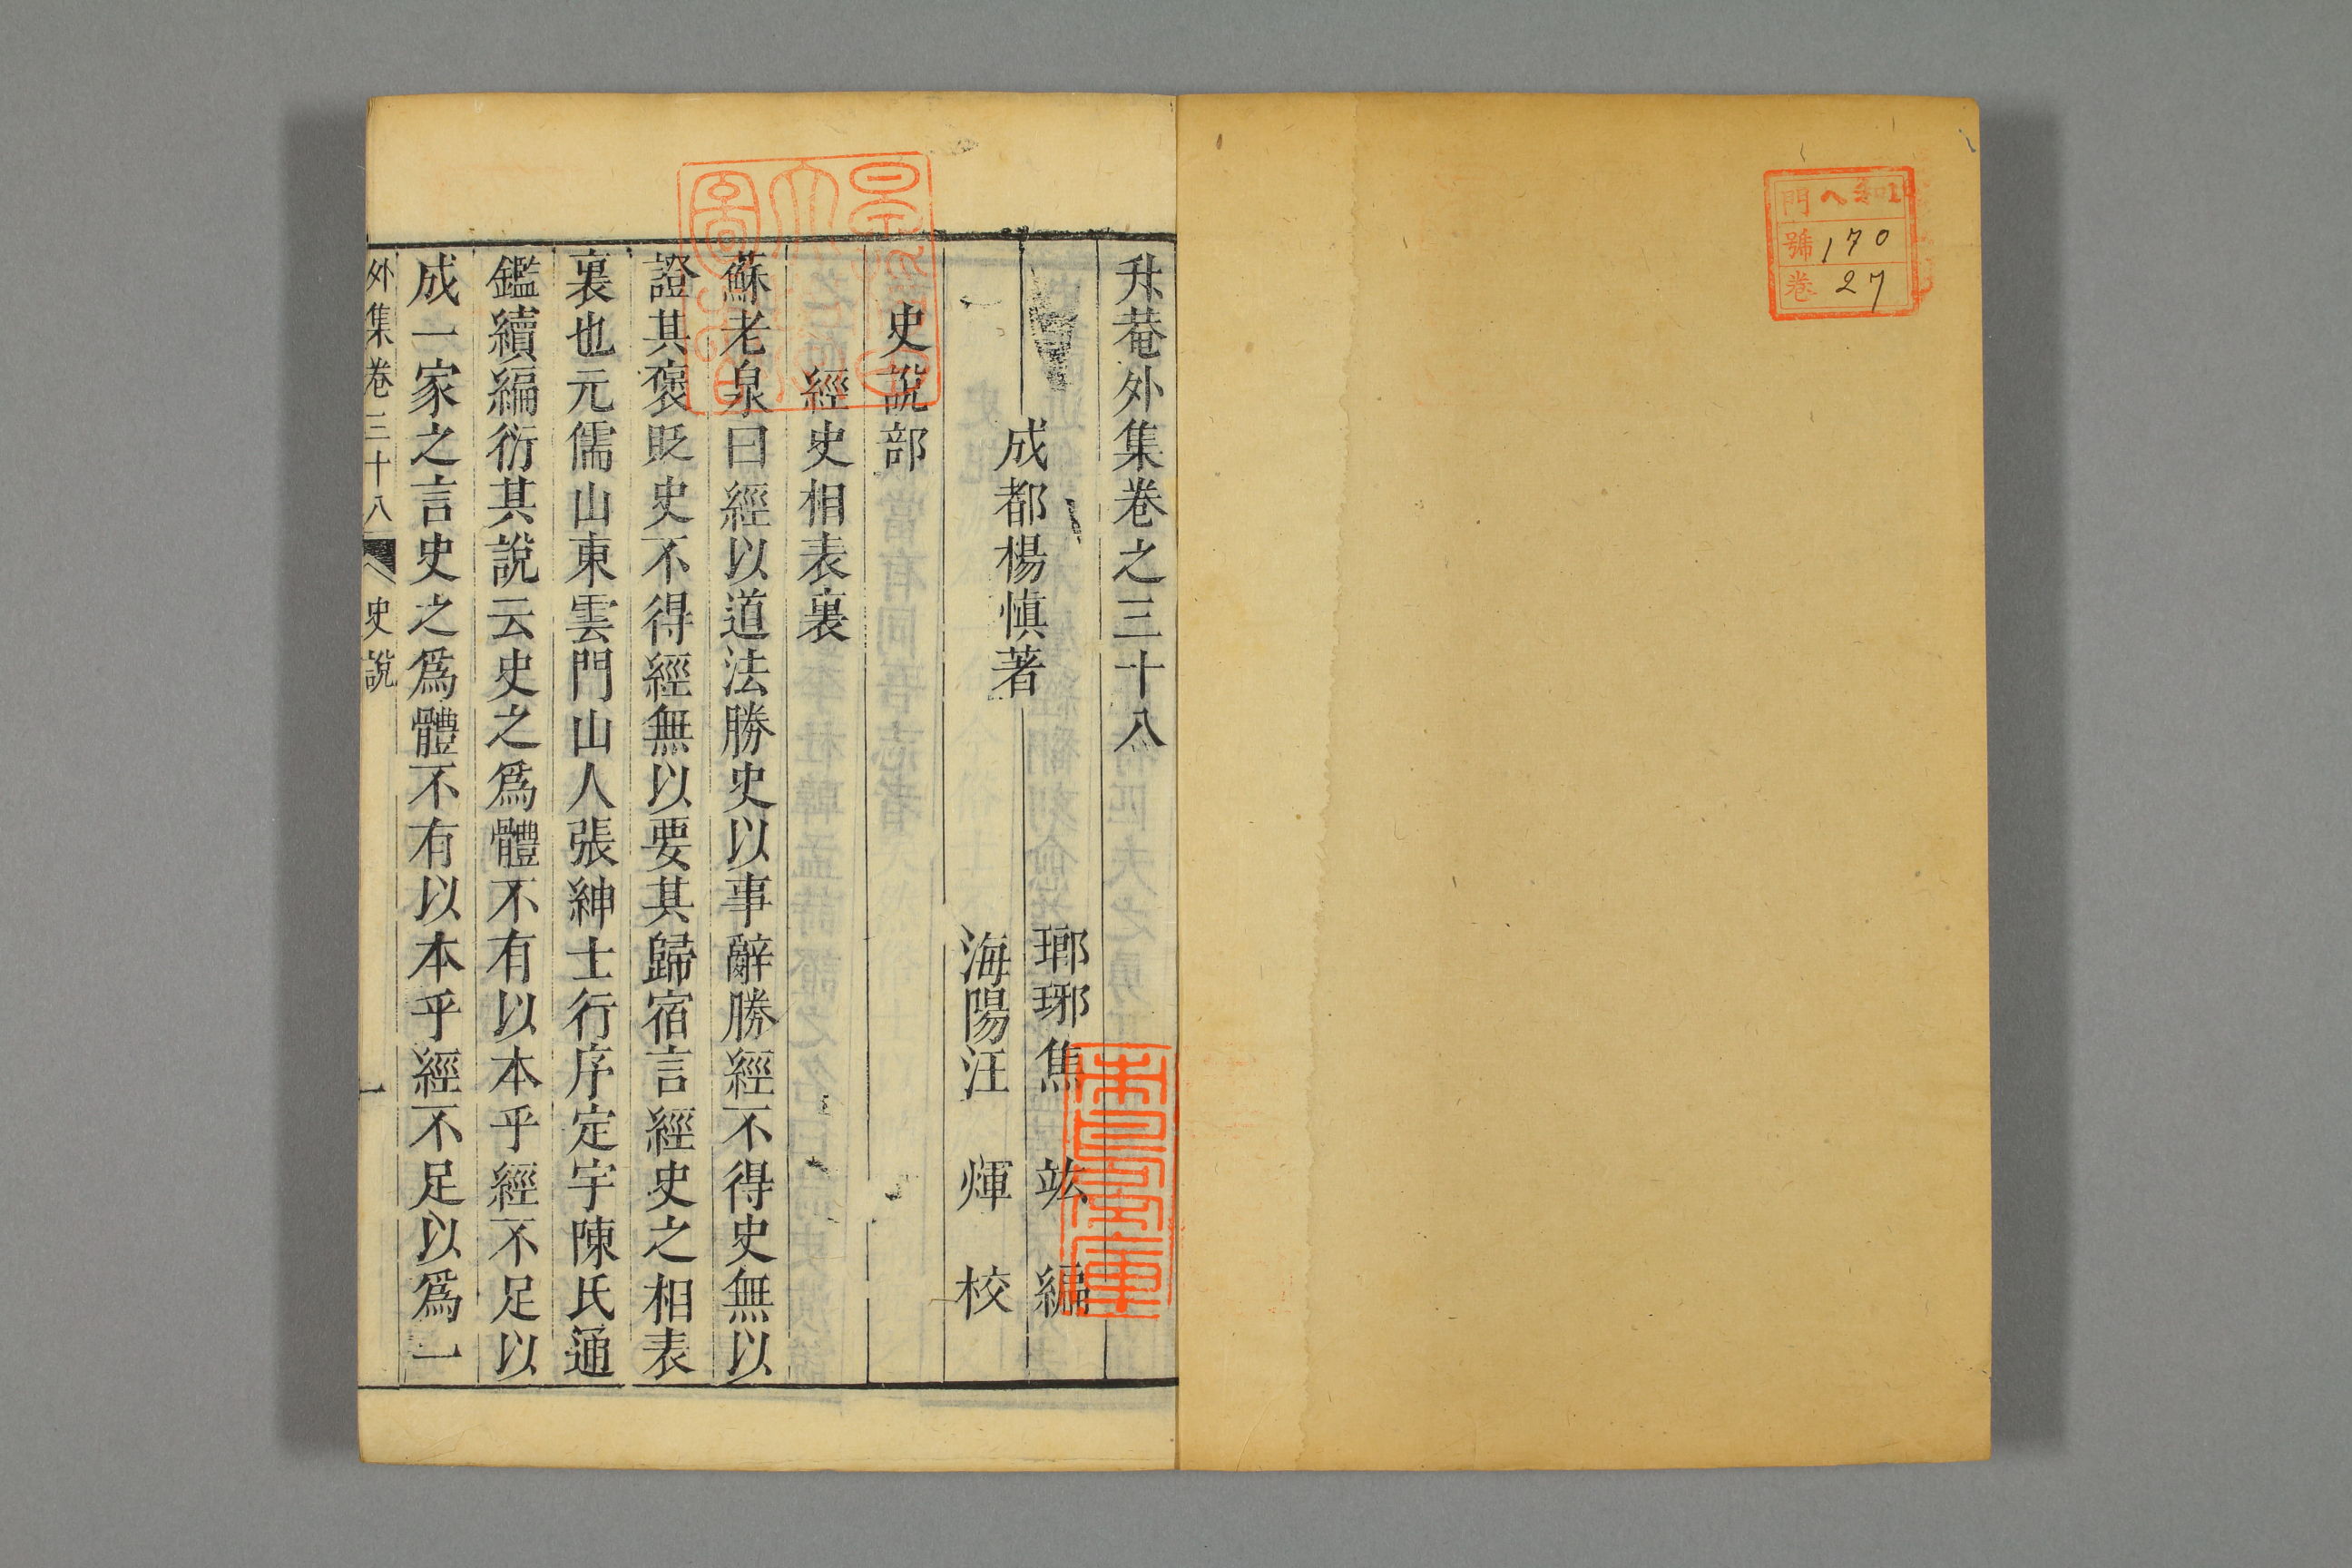 門 ヘ
號 170
卷 27
升菴外集卷之三十八
成都楊慎著
瑯琊焦竑編
海陽汪煇校
史說部
經史相表裏
蘇老泉曰經以道法勝史以事辭勝經不得史無以
證其褒貶史不得經無以要其歸宿言經史之相表
裏也元儒山東雲門山人張紳士行序定宇陳氏通
鑑續編衍其說云史之爲體不有以本乎經不足以
成一家之言史之爲體不有以本乎經不足以爲一
外集卷三十八 史說 一